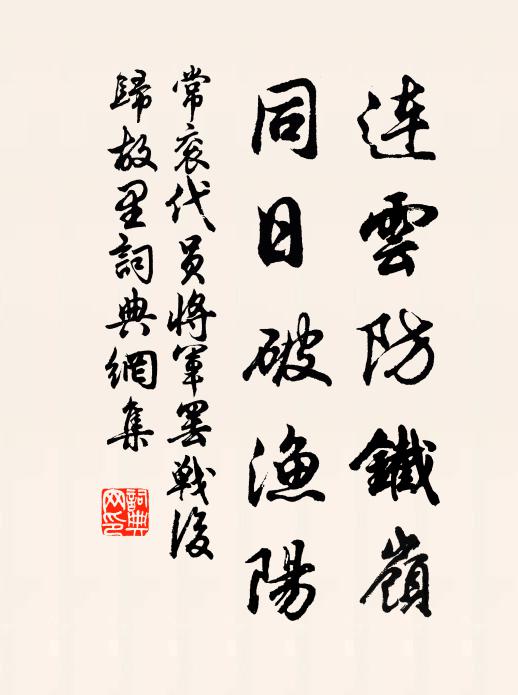 連雲防鐵嶺
同日破漁陽
常袞代員將軍罷戰後
歸故里詞典網集
詞典
网印